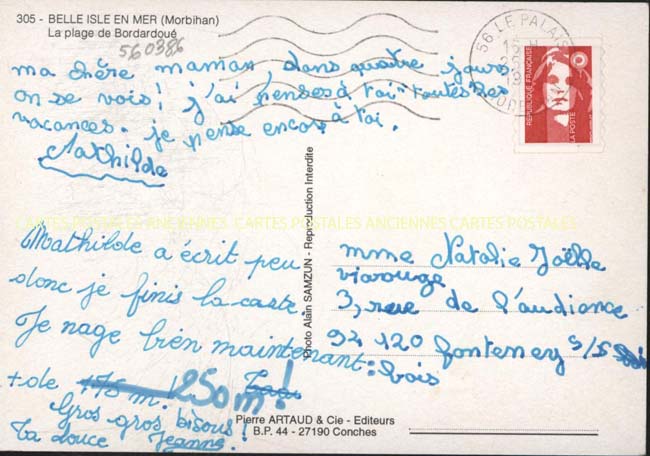 305 - BELLE ISLE EN MER (Morbihan)
La plage de Bordardoué
560386
ma chère maman, dans quatre jours
on se vois! j'ai penses à toi toutes les
vacances. je pense encors à toi.
Mathilde
Mathilde a écrit peu
donc je finis la carte.
Je nage bien maintenant:
+ de 175 m! 250 m!
Gros gros bisous!
Ta douce Jeanne.
Photo Alain SAMZUN - Reproduction Interdite
Pierre ARTAUD & Cie - Editeurs
B.P. 44 - 27190 Conches
56 LE PALAIS
RÉPUBLIQUE FRANÇAISE
LA POSTE
mme Natalie Joëlle
viarouge
3, rue de l'audiance
94 120 fonteney s/s
bois
CARTES POSTALES ANCIENNES CARTES POSTALES ANCIENNES CARTES POSTALES